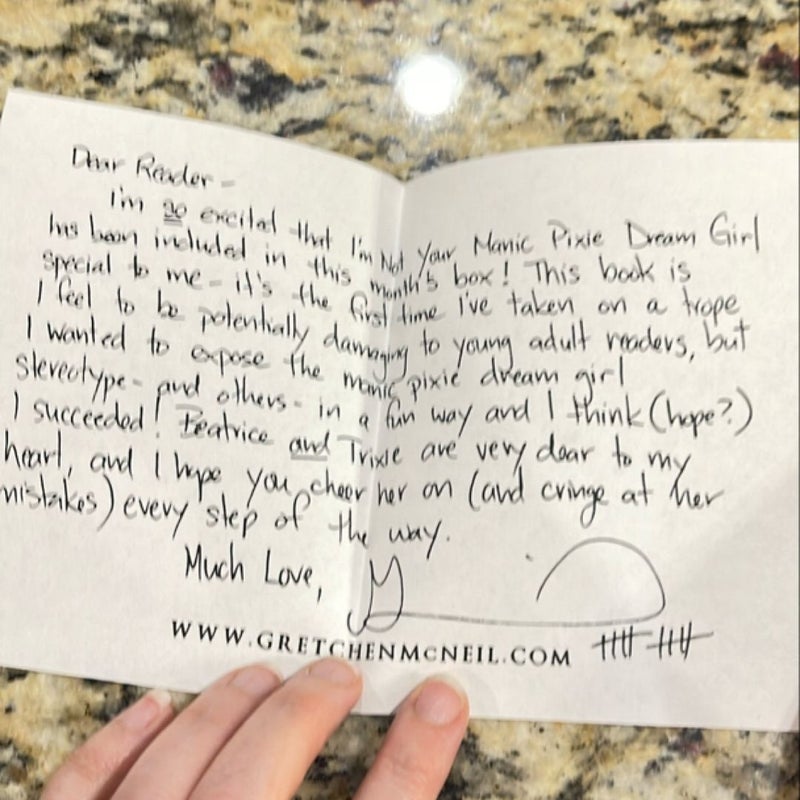 Dear Reader -
I'm so excited that I'm Not Your Manic Pixie Dream Girl
has been included in this month's box! This book is
special to me - it's the first time I've taken on a trope
I feel to be potentially damaging to young adult readers, but
I wanted to expose the manic pixie dream girl
stereotype - and others - in a fun way and I think (hope?)
I succeeded! Beatrice and Trixie are very dear to my
heart, and I hope you cheer her on (and cringe at her
mistakes) every step of the way.
Much Love,
WWW.GRETCHENMCNEIL.COM